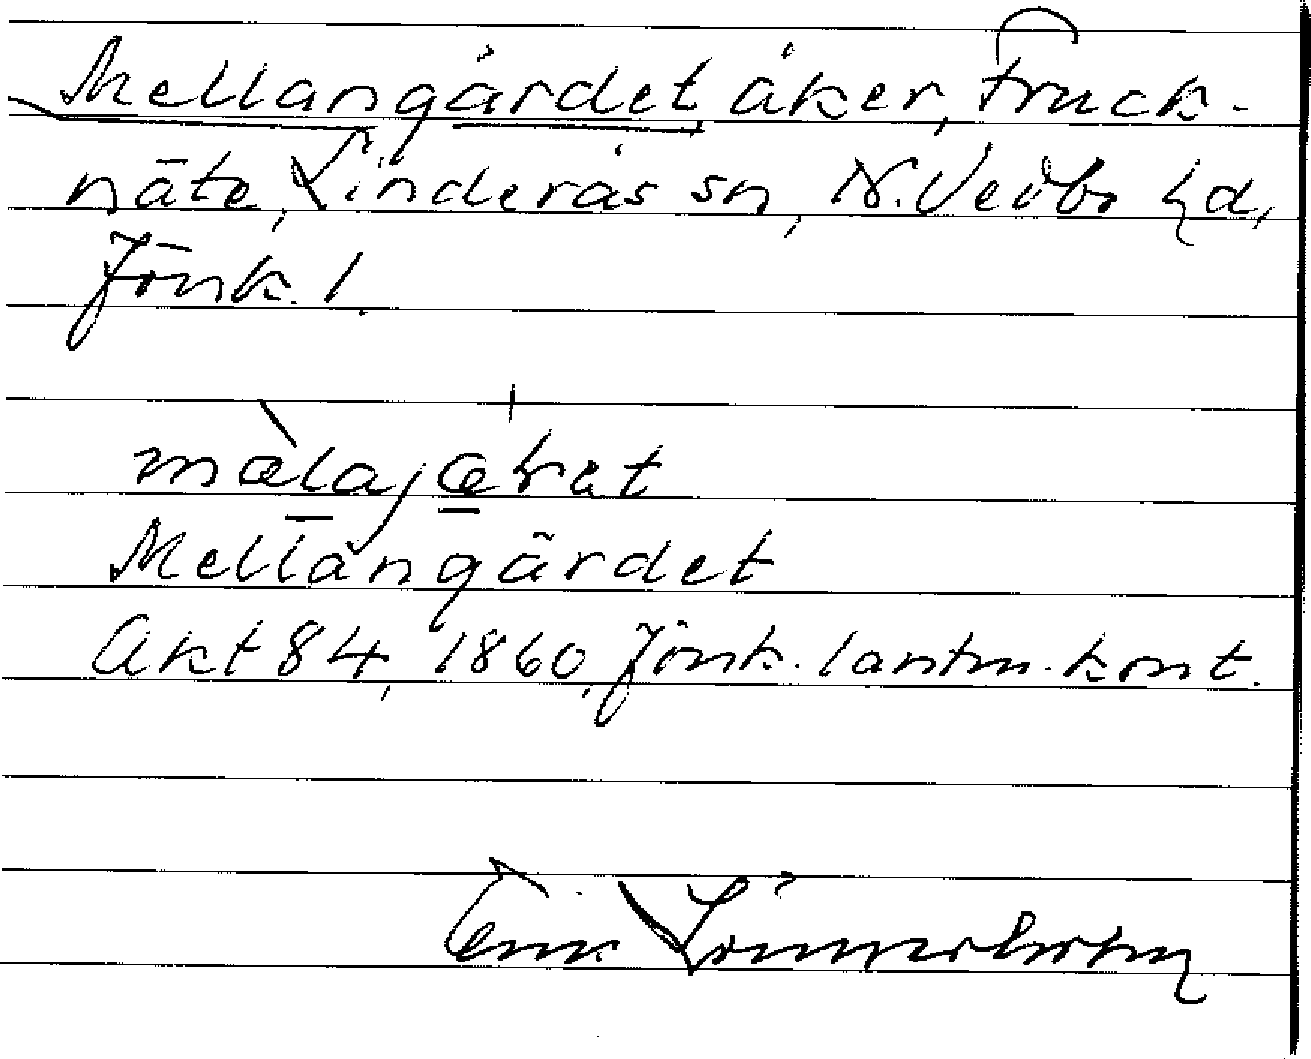 Mellangärdet, åker, Fruck-
näte, Linderås sn, N. Vedbo hd,
Jönk. l.
mælajæʀat
Mellangärdet
Akt 84, 1860, Jönk. lantm. kont.